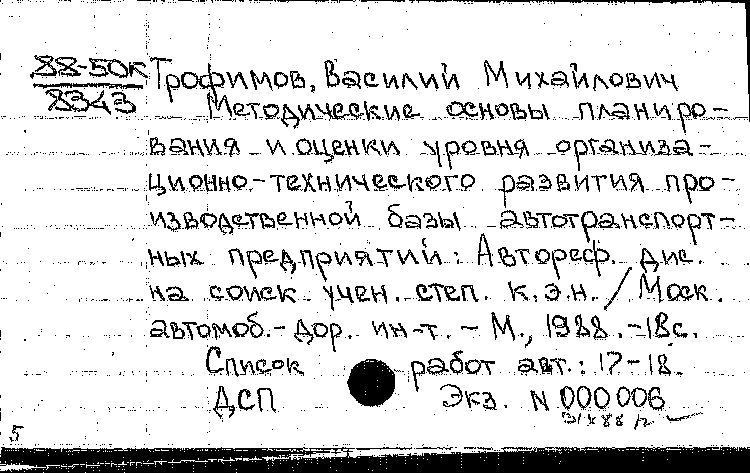 88-50К
8343
Трофимов, Василий Михайлович
Методические основы планиро-
вания и оценки уровня организа-
ционно-технического развития про-
изводственной базы автотранспорт-
ных предприятий: Автореф. дис.
на соиск. учен. степ. к.э.н. / Моск.
автомоб.-дор. ин-т. - М., 1988. - 18с.
Список работ авт.: 17-18.
ДСП Экз. N 000006
5